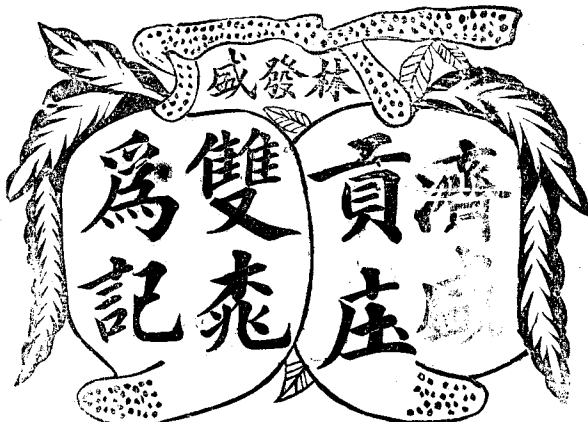 林發盛
濟盛
貢庄
雙桃
為記